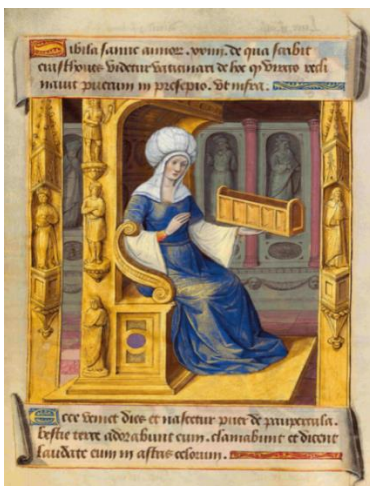 Sibila samie annor. de qua scribit
videtur vaticinari de hoc q virgo recli
navit puerum in presepio. Ut infra.
Ecce veniet dies et nascetur puer de paupercula.
bestie terre adorabunt eum. clamabunt et dicent
laudate eum in astris celorum.